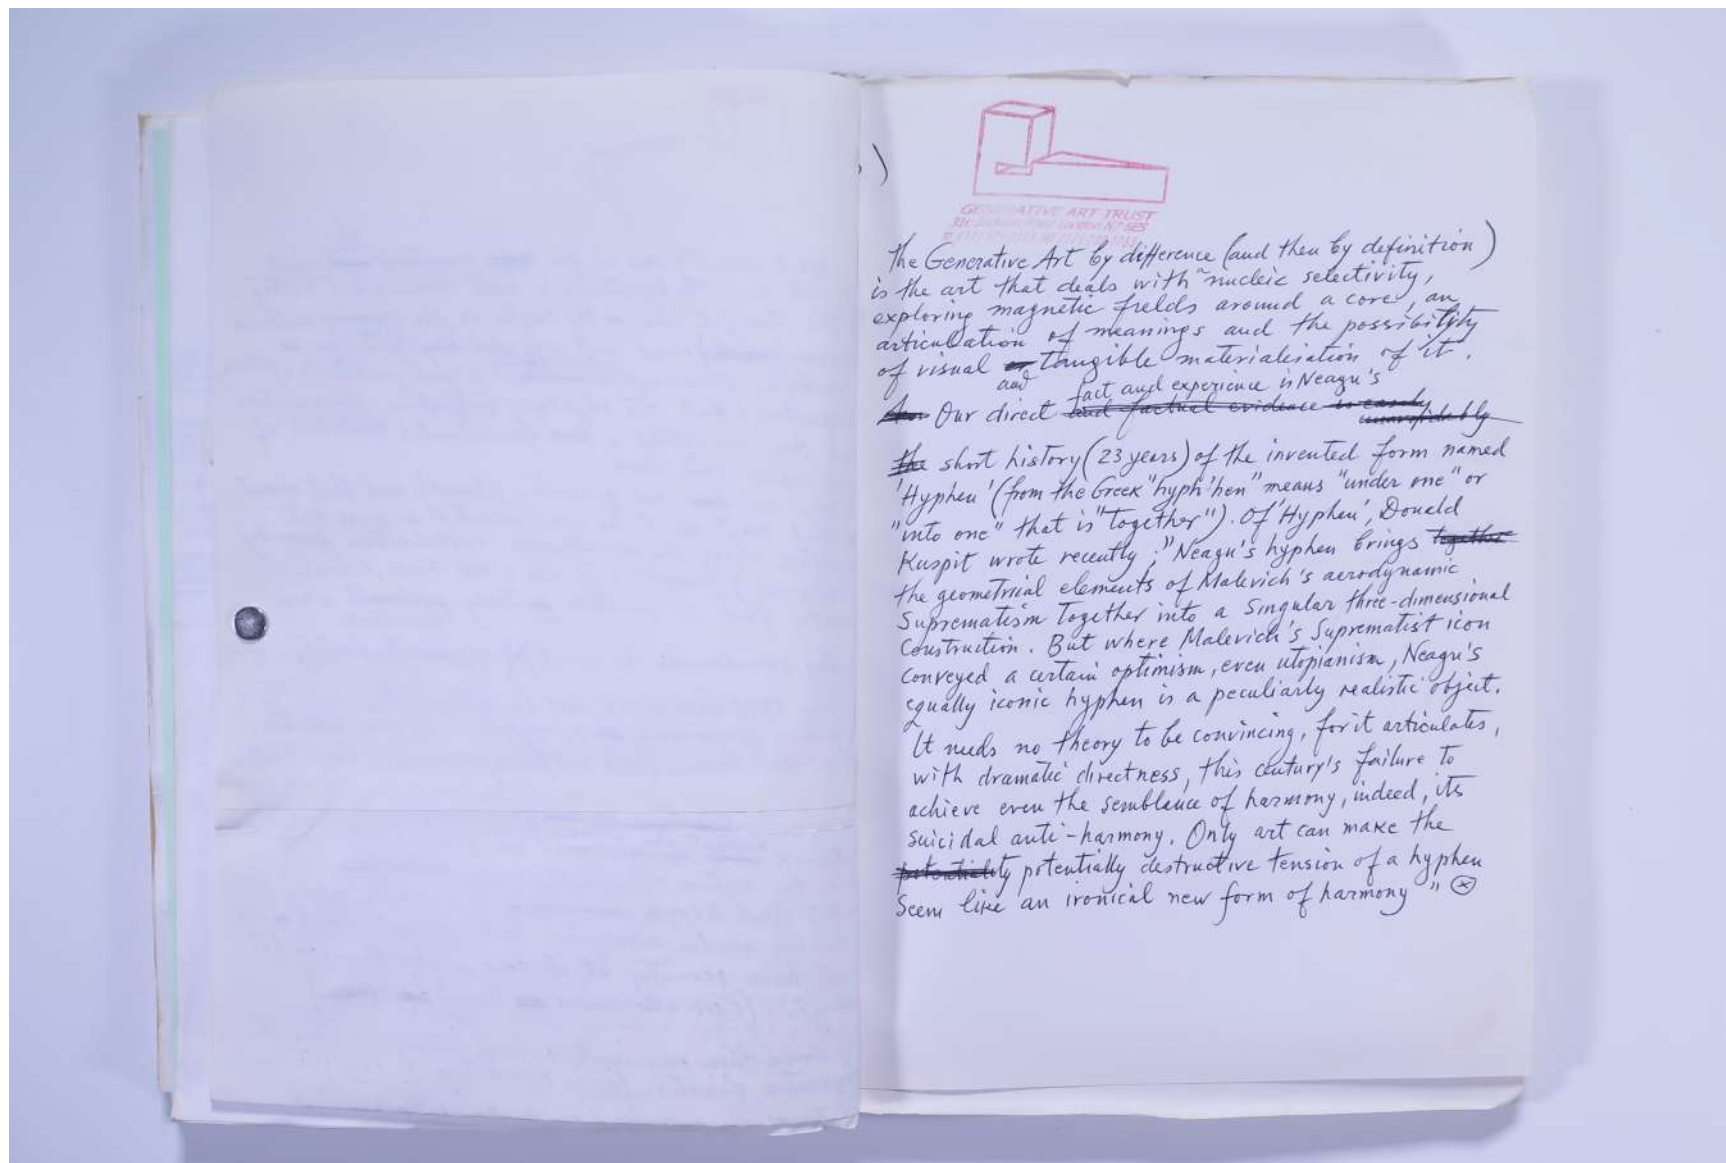 GENERATIVE ART TRUST
London N7 6ES
)
the Generative Art by difference (and then by definition)
is the art that deals with nucleic selectivity,
exploring magnetic fields around a core, an
articulation of meanings and the possibility
of visual or tangible materialisation of it.
and fact and experience is Neagu's
Our direct and factual evidence is easily
the short history (23 years) of the invented form named
'Hyphen' (from the Greek "hyph'hen" means "under one" or
"into one" that is "together"). Of 'Hyphen', Donald
Kuspit wrote recently: "Neagu's hyphen brings together
the geometrial elements of Malevich's aerodynamic
Suprematism together into a singular three-dimensional
construction. But where Malevich's Suprematist icon
conveyed a certain optimism, even utopianism, Neagu's
equally iconic hyphen is a peculiarly realistic object.
It needs no theory to be convincing, for it articulates,
with dramatic directness, this century's failure to
achieve even the semblance of harmony, indeed, its
suicidal anti-harmony. Only art can make the
potentiality potentially destructive tension of a hyphen
seem like an ironical new form of harmony" ⊗